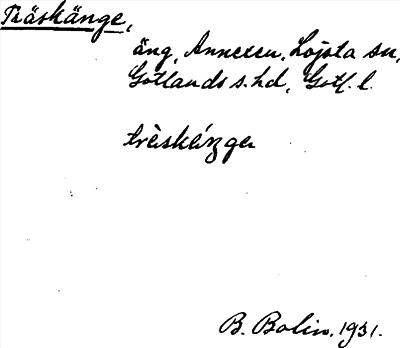 Träskänge,
äng, Annexen, Lojsta sn,
Gotlands s. hd, Gotl. l.
trèskéŋgε
B. Bolin. 1931.